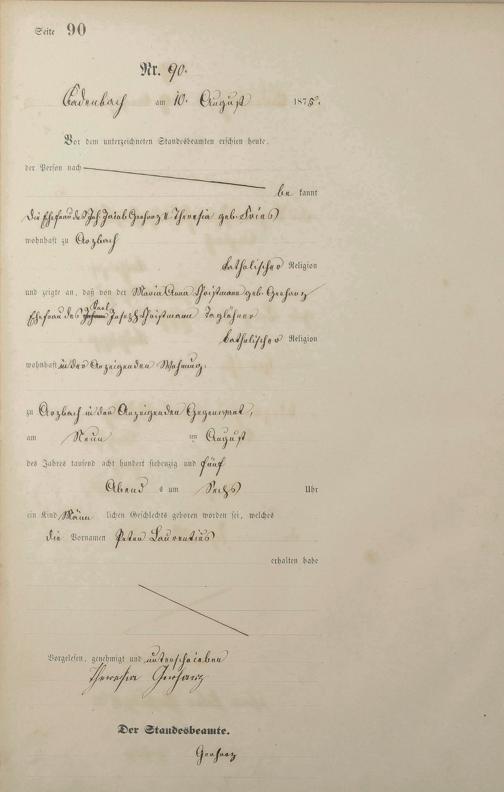 Seite 90
Nr. 90.
Cadenbach am 10. August 1875.
Vor dem unterzeichneten Standesbeamten erschien heute,
der Person nach
be kannt
die Ehefrau des Joh. Jacob Gerharz II Theresia geb. Fries
wohnhaft zu Arzbach
katholischer Religion
und zeigte an, daß von der Maria Anna geb. Gerharz
Ehefrau des Karl Joseph Taglöhner
katholischer Religion
wohnhaft in der Anzeigenden Wohnung
zu Arzbach in der Anzeigenden Gegenwart,
am Neun ten August
des Jahres tausend acht hundert siebenzig und fünf
Abend s um Sechs Uhr
ein Kind Männ lichen Geschlechts geboren worden sei, welches
die Vornamen Peter Laurentius
erhalten habe
Vorgelesen, genehmigt und unterschrieben
Theresia Gerharz
Der Standesbeamte.
Gerharz